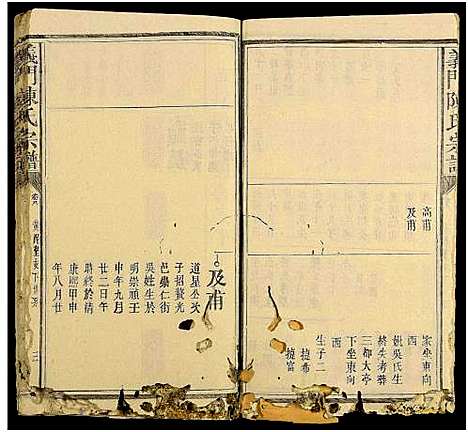 義門陳氏宗譜
高甫
及甫
家坐東向
西
妣吳氏生
終失考葬
三都大亭
下坐東向
西
生子二
捷希
捷富
義門陳氏宗譜
及甫
道星公次
子招贅光
邑崇仁街
吳姓生於
明崇禎壬
申年九月
廿二日午
時終於清
康熙甲申
年八月廿
三